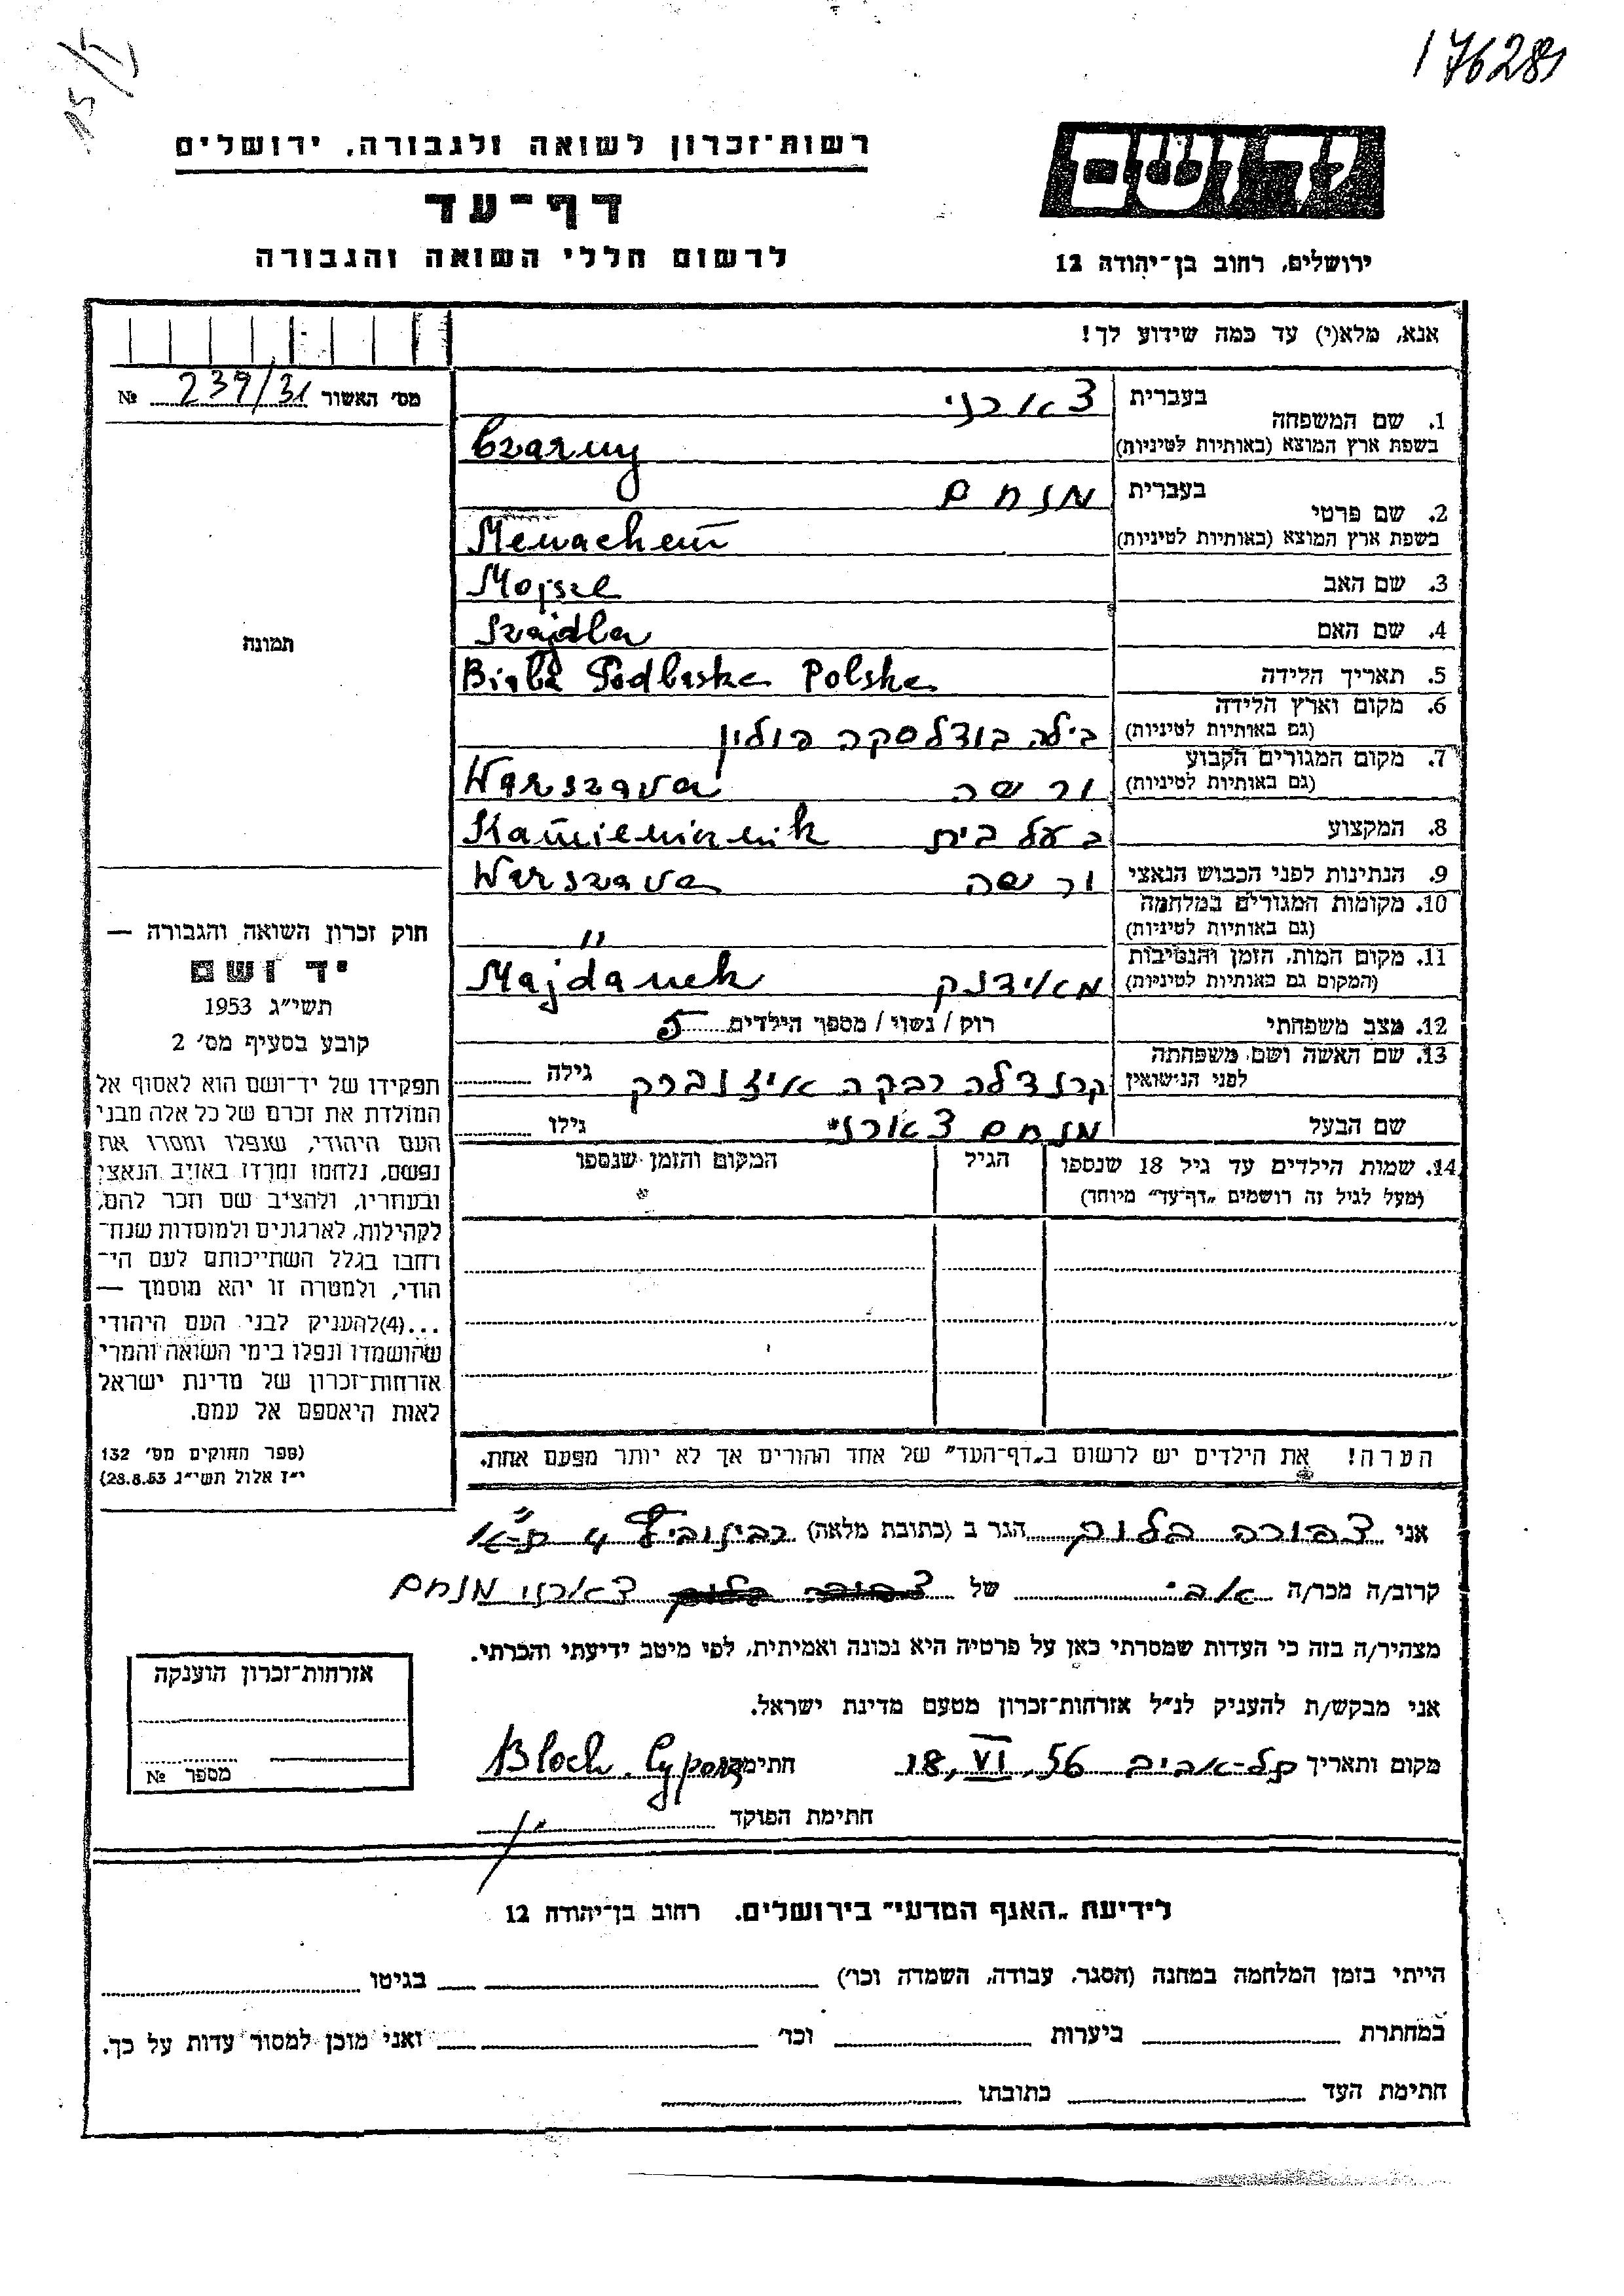 176281
רשות־זכרון לשואה ולגבורה, ירושלים
דף־עד
לרשום חללי השואה והגבורה
יד ושם
ירושלים, רחוב בן־יהודה 12
אנא, מלא(י) עד כמה שידוע לך!
מס׳ האשור 239/31 №
1. שם המשפחה
בעברית צארני
בשפת ארץ המוצא (באותיות לטיניות) Czarny
2. שם פרטי
בעברית מנחם
בשפת ארץ המוצא (באותיות לטיניות) Menachem
3. שם האב Mojsze
4. שם האם Szajdla
5. תאריך הלידה Biała Podlaska Polska
6. מקום וארץ הלידה
(גם באותיות לטיניות) בילה בודלסקה פולין
7. מקום המגורים הקבוע
(גם באותיות לטיניות) ורשה Warszava
8. המקצוע בעל בית Kamienicznik
9. הנתינות לפני הכבוש הנאצי ורשה Warszava
10. מקומות המגורים במלחמה
(גם באותיות לטיניות) "
11. מקום המות, הזמן והנסיבות
(המקום גם באותיות לטיניות) מאידנק Majdanek
12. מצב משפחתי רוק / נשוי / מספר הילדים 5
13. שם האשה ושם משפחתה
לפני הנישואין קרנדלה רבקה איזנברק גילה
שם הבעל מנחם צארני גילו
14. שמות הילדים עד גיל 18 שנספו
(מעל לגיל זה רושמים „דף־עד״ מיוחד)
הגיל
המקום והזמן שנספו
הערה! את הילדים יש לרשום ב„דף־העד״ של אחד ההורים אך לא יותר מפעם אחת.
תמונה
חוק זכרון השואה והגבורה —
יד ושם
תשי״ג 1953
קובע בסעיף מס׳ 2
תפקידו של יד־ושם הוא לאסוף אל
המולדת את זכרם של כל אלה מבני
העם היהודי, שנפלו ומסרו את
נפשם, נלחמו ומרדו באויב הנאצי
ובעוזריו, ולהציב שם וזכר להם,
לקהילות, לארגונים ולמוסדות שנח־
רבו בגלל השתייכותם לעם הי־
הודי, ולמטרה זו יהא מוסמך —
...(4) להעניק לבני העם היהודי
שהושמדו ונפלו בימי השואה והמרי
אזרחות־זכרון של מדינת ישראל
לאות היאספם אל עמם.
(ספר החוקים מס׳ 132
י״ז אלול תשי״ג 28.8.53)
אני צפורה בלוך הגר ב (כתובת מלאה) רבינוביץ 4 ת״א
קרוב/ה מכר/ה אבי של צארני מנחם
מצהיר/ה בזה כי העדות שמסרתי כאן על פרטיה היא נכונה ואמיתית, לפי מיטב ידיעתי והכרתי.
אני מבקש/ת להעניק לנ״ל אזרחות־זכרון מטעם מדינת ישראל.
מקום ותאריך תל-אביב 18, VI, 56 חתימה Bloch. Cypora
חתימת הפוקד
אזרחות־זכרון הוענקה
מספר №
לידיעת „האגף המדעי״ בירושלים. רחוב בן־יהודה 12
הייתי בזמן המלחמה במחנה (הסגר, עבודה, השמדה וכו׳) בגיטו
במחתרת ביערות וכו׳ ואני מוכן למסור עדות על כך.
חתימת העד כתובתו